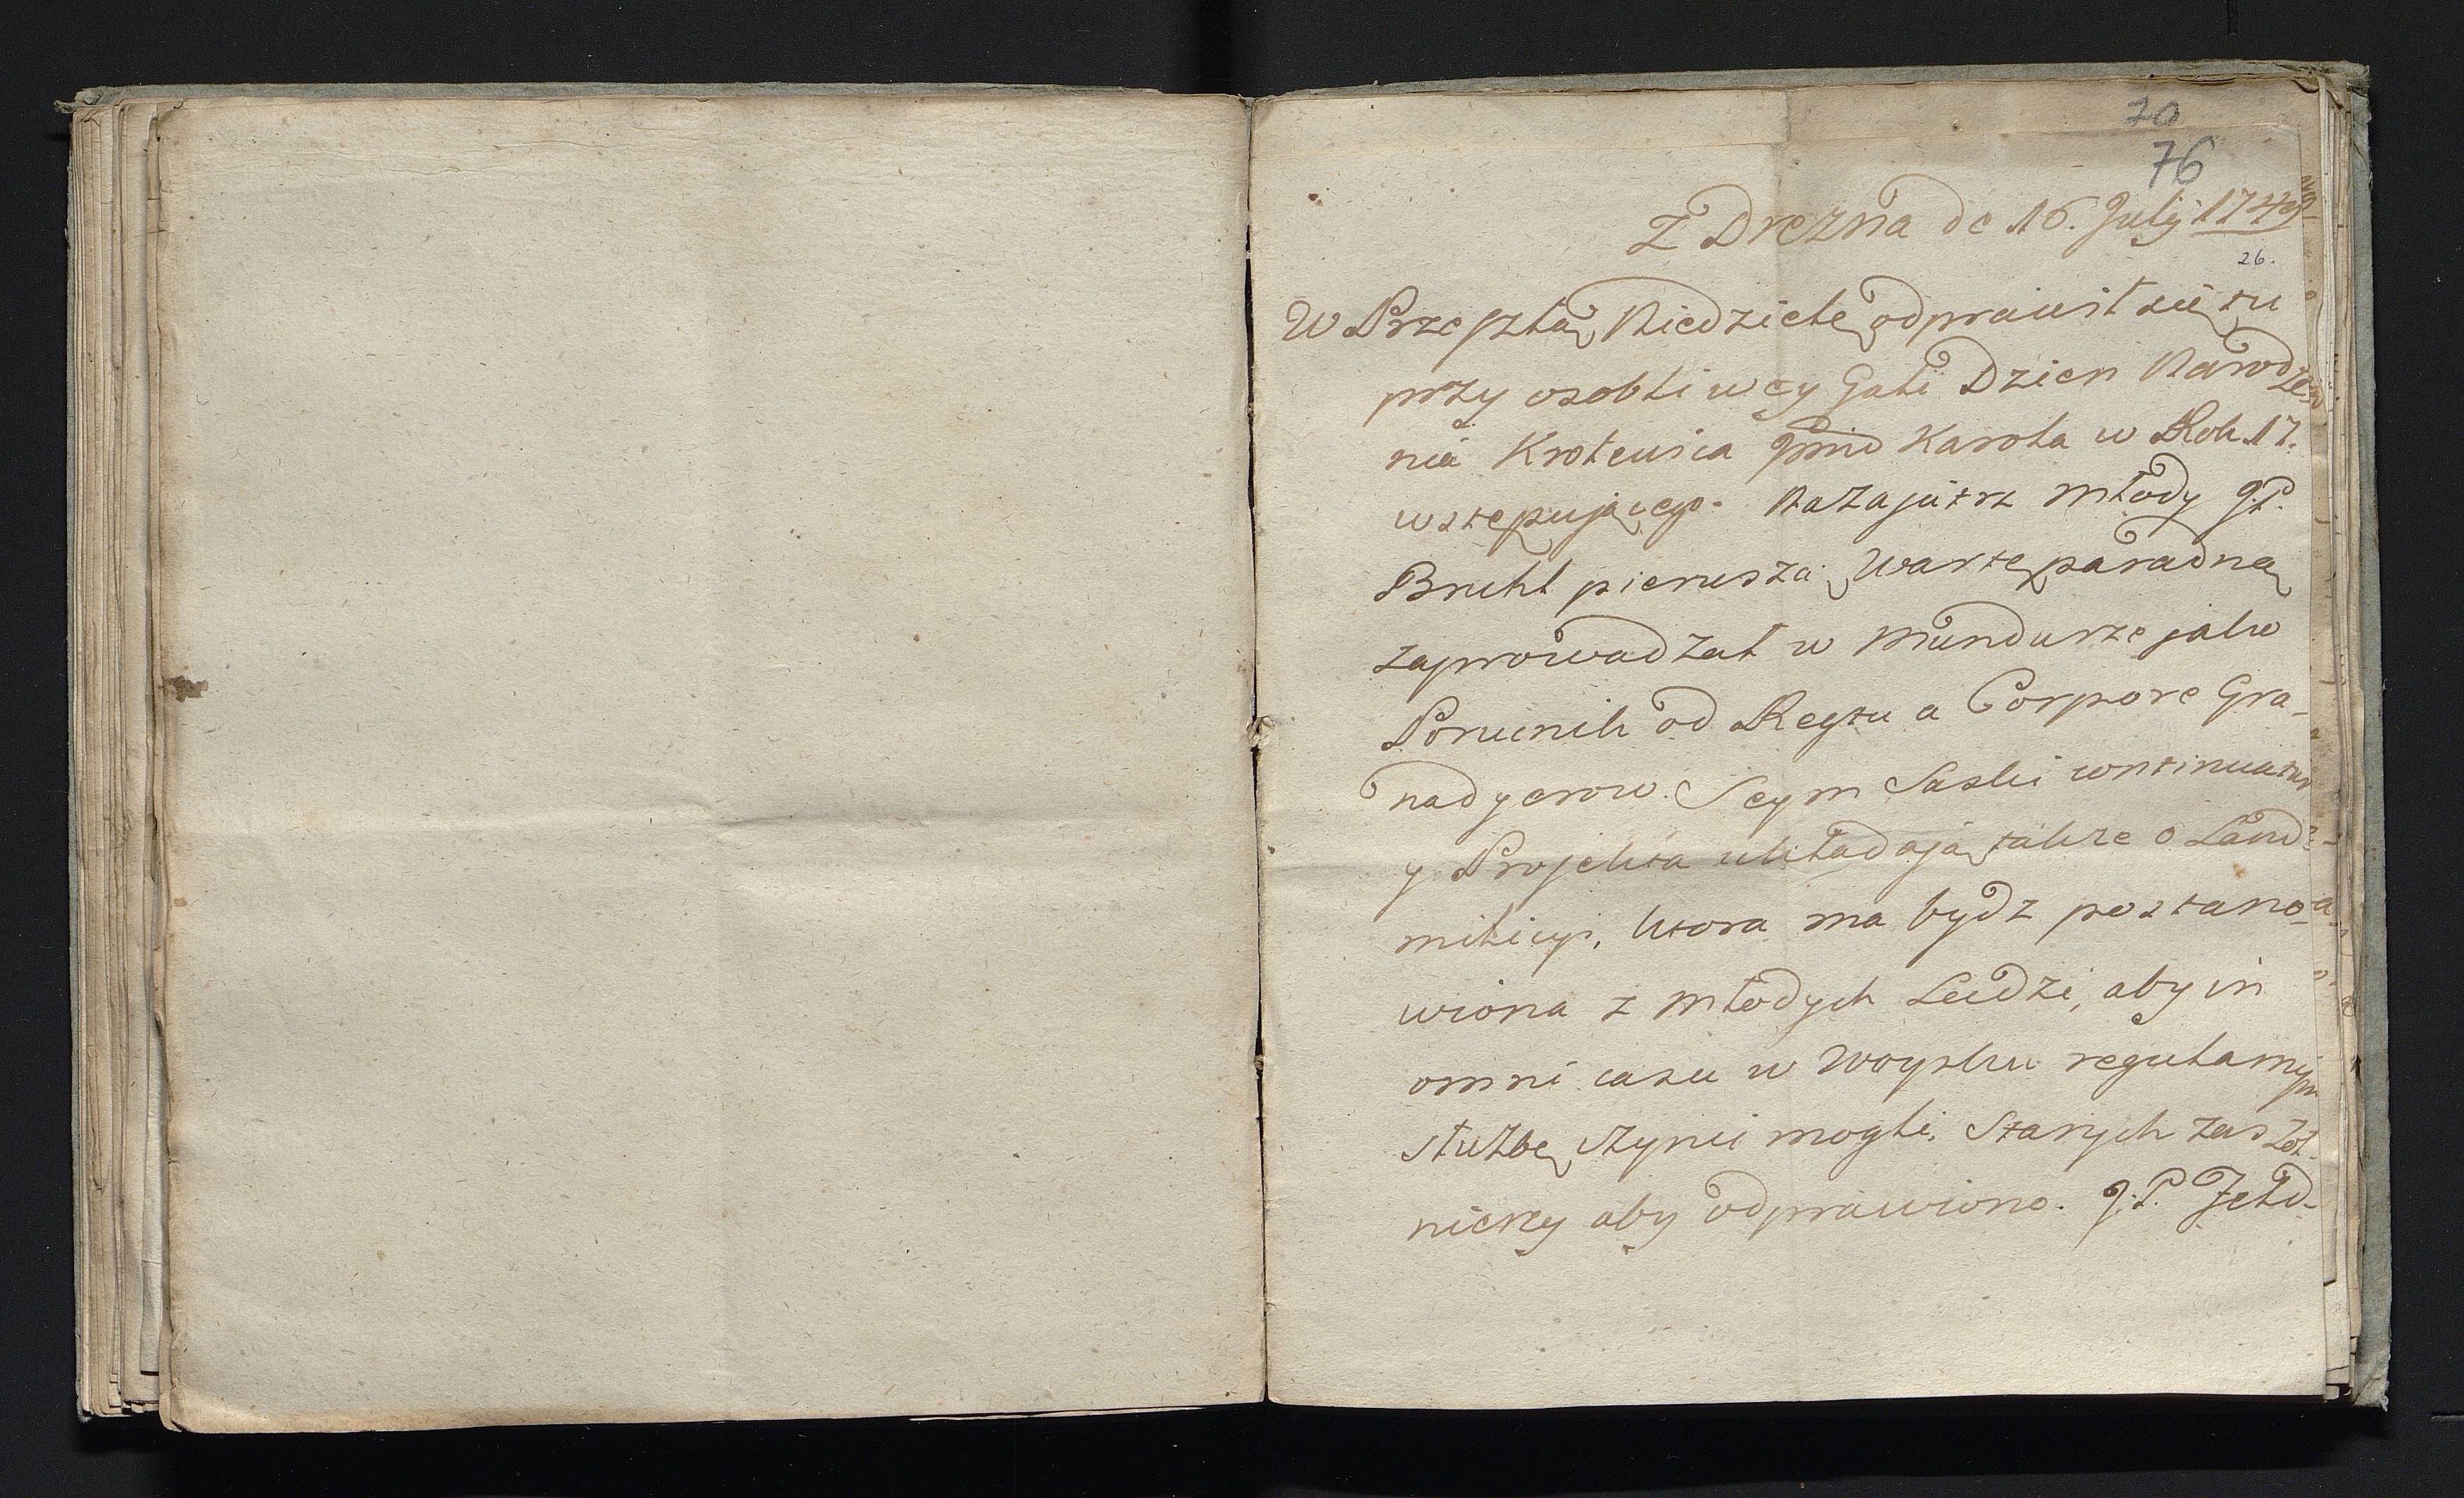 70
76
Z Drezna de 16. Julij 1749
26.
W Przeszłą Niedzielę odprawił się tu
przy osobliwey Gali Dzien Narodze
nia Krolewica Jmci Karola w Rok 17.
wstępującego. Nazajutrz młody J.P.
Bruhl pierwszą Wartę paradną
zaprowadzał w Mundurze jako
Porucnik od Regtu a Corpore Gra-
nadyerow. Seym Saski continuatur
y Projekta układają także o Land
milicyi, ktora ma bydz postano-
wiona z młodych Ludzi, aby in
omni casu w Woysku regularnym
służbę czynic mogli, Starych zas żoł-
nierzy aby odprawiono. J.P. Feld-